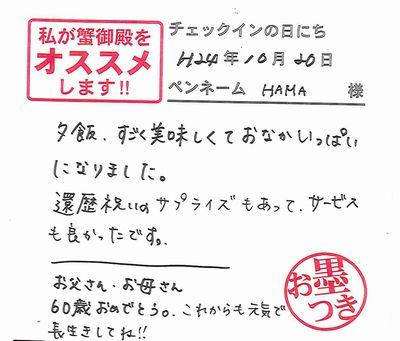 私が蟹御殿を
オススメ
します!!
チェックインの日にち
H24年10月20日
ペンネーム HAMA 様
夕飯、すごく美味しくておなかいっぱい
になりました。
還暦祝いのサプライズもあって、サービス
も良かったです。
お父さん・お母さん
60歳おめでとう。これからも元気で
長生きしてね!!
お墨
つき